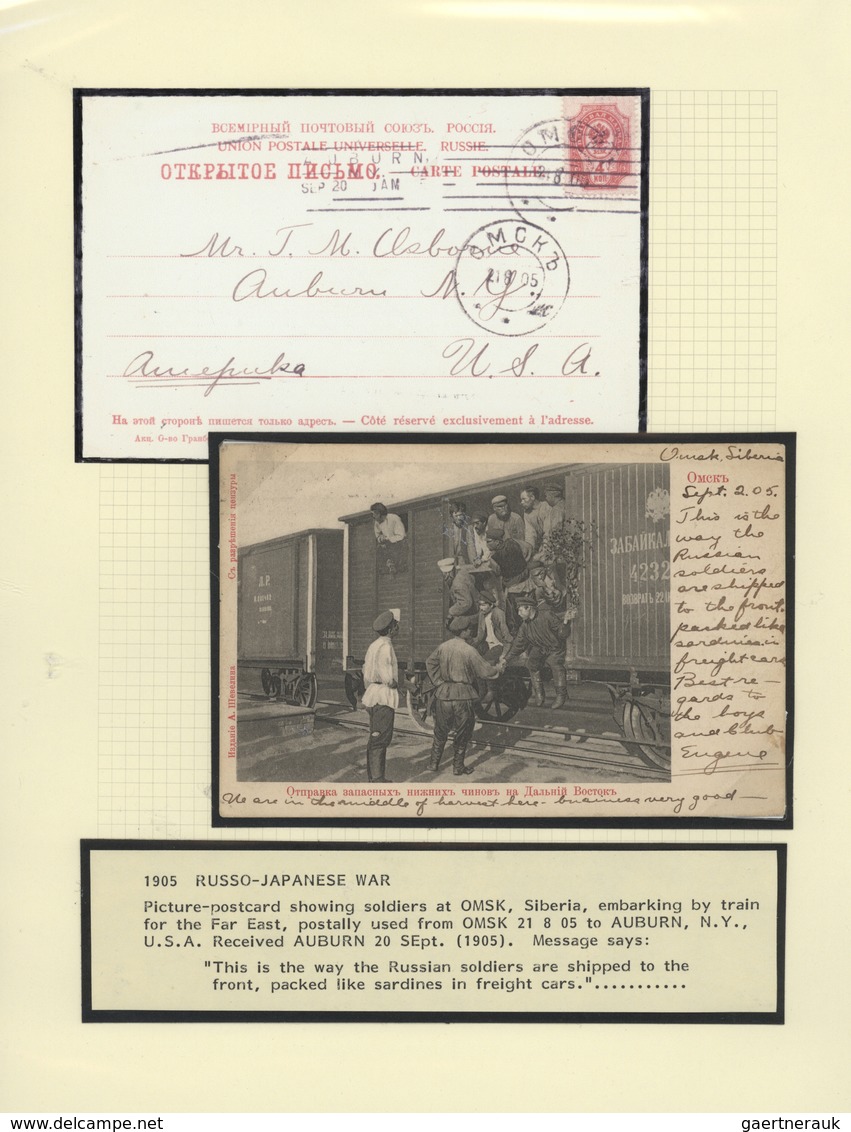 ВСЕМІРНЫЙ ПОЧТОВЫЙ СОЮЗЪ. РОССІЯ.
UNION POSTALE UNIVERSELLE. RUSSIE.
ОТКРЫТОЕ ПИСЬМО. — CARTE POSTALE.
AUBURN
SEP 20 AM
ОМСКЪ
ОМСКЪ
21 8 05
Mr. T. M. Osborne
Auburn N. Y.
Америка U. S. A.
На этой сторонѣ пишется только адресъ. — Côté réservé exclusivement à l'adresse.
Акц. О-во
Съ разрѣшенія цензуры
Изданіе А. Шевелина
Л.Р.
ЗАБАЙКАЛ
4232
ВОЗВРАТЪ 22
Omsk, Siberia
Омскъ
Sept. 2. 05.
This is the
way the
Russian
soldiers
are shipped
to the front.
packed like
sardines in
freight cars
Best re-
gards to
the boys
and Club
Eugene
Отправка запасныхъ нижнихъ чиновъ на Дальній Востокъ
We are in the middle of harvest here - business very good —
1905 RUSSO-JAPANESE WAR
Picture-postcard showing soldiers at OMSK, Siberia, embarking by train
for the Far East, postally used from OMSK 21 8 05 to AUBURN, N.Y.,
U.S.A. Received AUBURN 20 SEpt. (1905). Message says:
"This is the way the Russian soldiers are shipped to the
front, packed like sardines in freight cars."...........
gaertnerauk